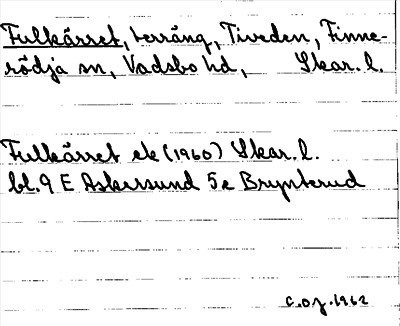 Fulkärret, terräng, Tiveden, Finne-
rödja sn, Vadsbo hd, Skar. l.
Fulkärret ek (1960) Skar. l.
bl. 9 E Askersund 5e Brynterud
C.O.J. 1962